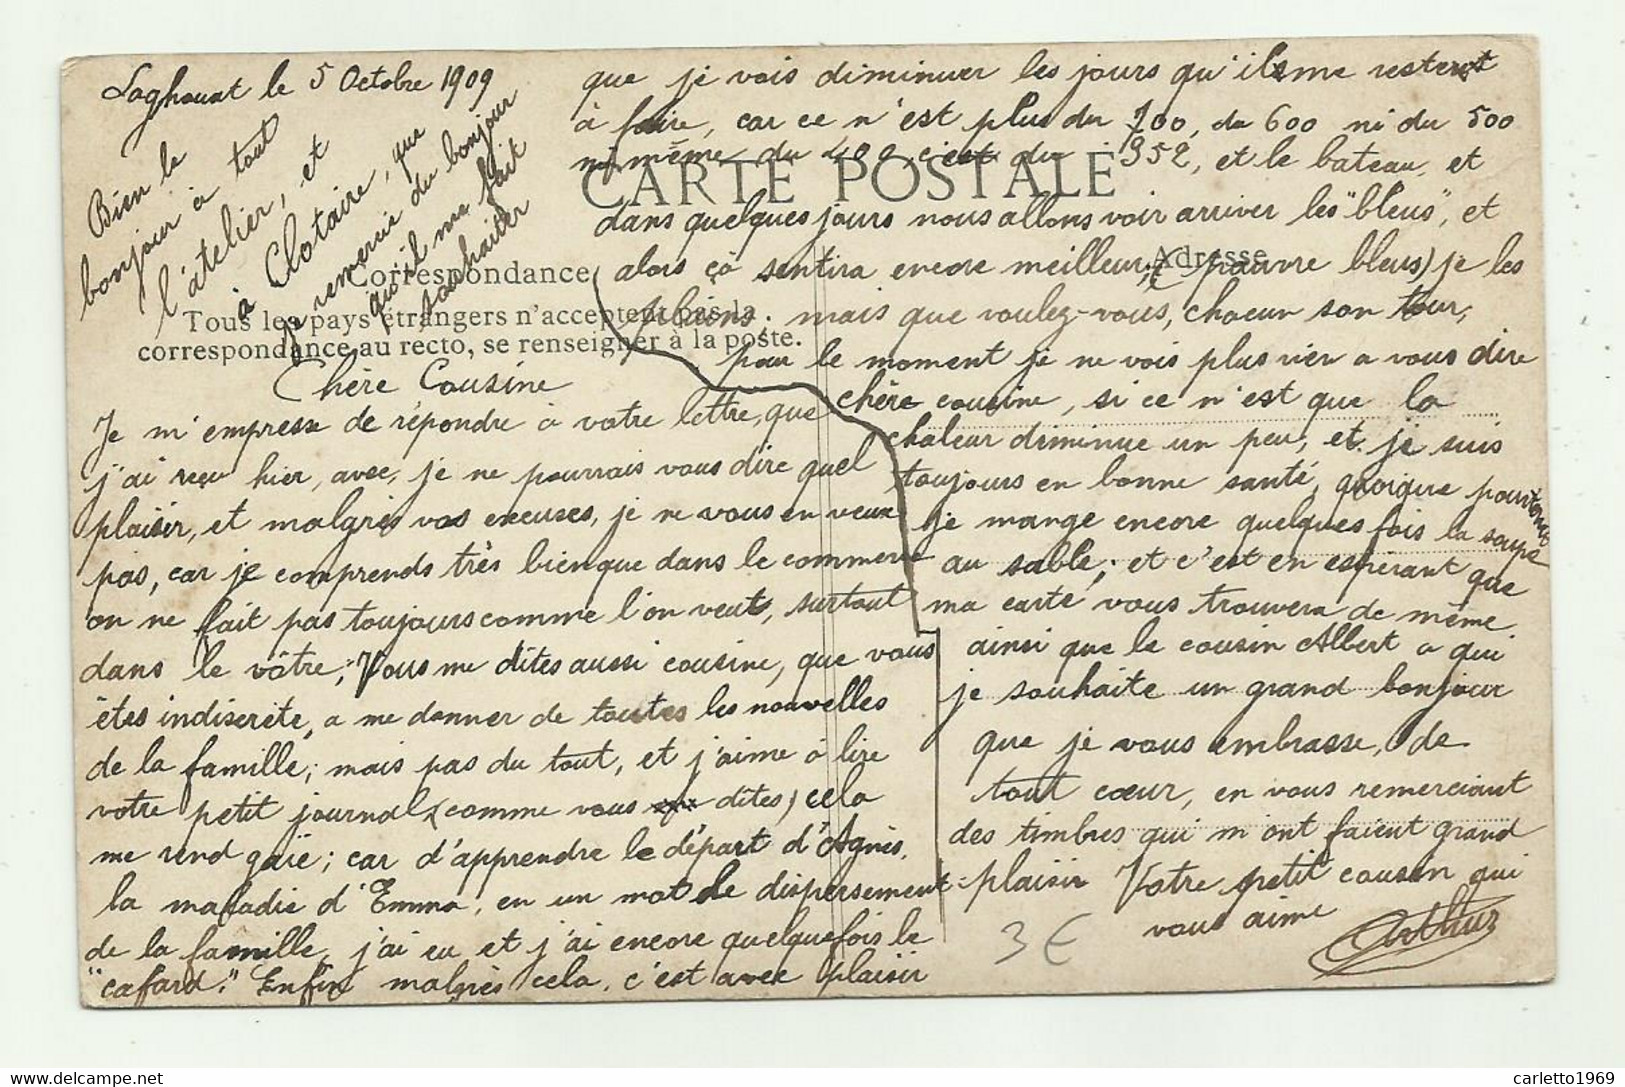 Laghouat le 5 Octobre 1909
Bien le
bonjour à tout
l'atelier, et
à Clotaire, que
je remercie du bonjour
qu'il me fait
souhaiter
CARTE POSTALE
Correspondance
Adresse
Tous les pays étrangers n'acceptent pas la
correspondance au recto, se renseigner à la poste.
Chère Cousine
Je m'empresse de répondre à votre lettre, que
j'ai reçu hier, avec, je ne pourrais vous dire quel
plaisir, et malgrès vos excuses, je ne vous en veux
pas, car je comprends très bien que dans le commerce
on ne fait pas toujours comme l'on veut, surtout
dans le vôtre; Vous me dites aussi cousine, que vous
êtes indiscrète, a me donner de toutes les nouvelles
de la famille; mais pas du tout, et j'aime à lire
votre petit journal, (comme vous dites) cela
me rend gaie; car d'apprendre le départ d'Agnis,
la maladie d'Emma, en un mot le dispersement
de la famille, j'ai eu et j'ai encore quelquefois le
"cafard." Enfin malgrès cela, c'est avec plaisir
que je vois diminuer les jours qu'il me restent
à faire, car ce n'est plus du 700, du 600 ni du 500
ni même du 400 c'est du 352, et le bateau, et
dans quelques jours nous allons voir arriver les "bleus", et
alors çà sentira encore meilleur, (pauvre bleus) je les
plains; mais que voulez-vous, chacun son tour,
pour le moment je ne vois plus rien a vous dire
chère cousine, si ce n'est que la
chaleur diminue un peu, et je suis
toujours en bonne santé, quoique pourtant
je mange encore quelques fois la soupe
au sable; et c'est en espérant que
ma carte vous trouvera de même
ainsi que le cousin Albert a qui
je souhaite un grand bonjour
que je vous embrasse, de
tout cœur, en vous remerciant
des timbres qui m'ont faient grand
plaisir Votre petit cousin qui
vous aime
Arthur
3 €
carletto1969